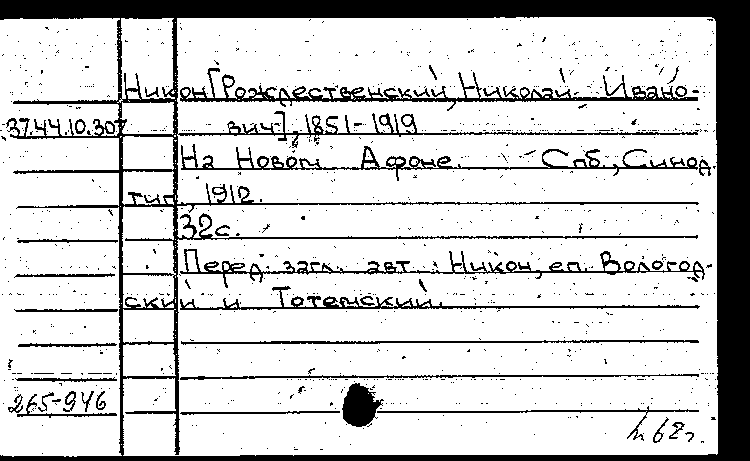 Никон[Рождественский, Николай Ивано-
37.44.10.307 вич], 1851-1919
На Новом Афоне. Спб., Синод.
тип., 1912.
32с.
Перед загл. авт.: Никон, еп. Вологод-
ский и Тотемский.
265-946
62г.